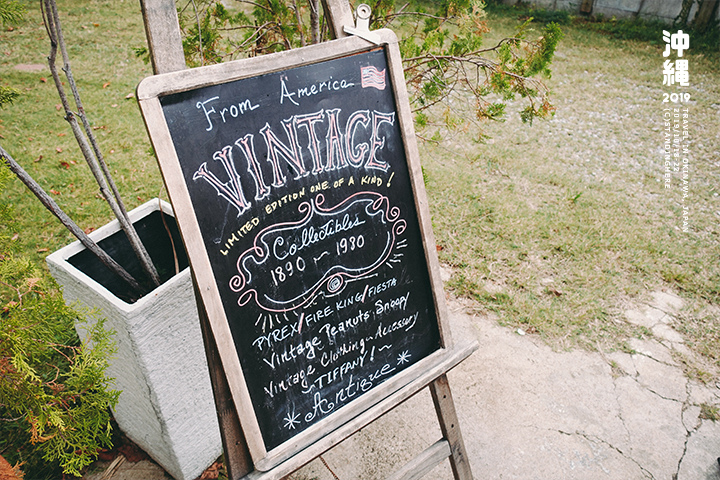 From America
VINTAGE
LIMITED EDITION ONE OF A KIND!
Collectibles
1890 ~ 1980
PYREX/FIRE KING/FIESTA
Vintage Peanuts Snoopy
Vintage Clothing Accessory
~TIFFANY!~
*Antique*
沖縄
2019
TRAVEL IN OKINAWA, JAPAN